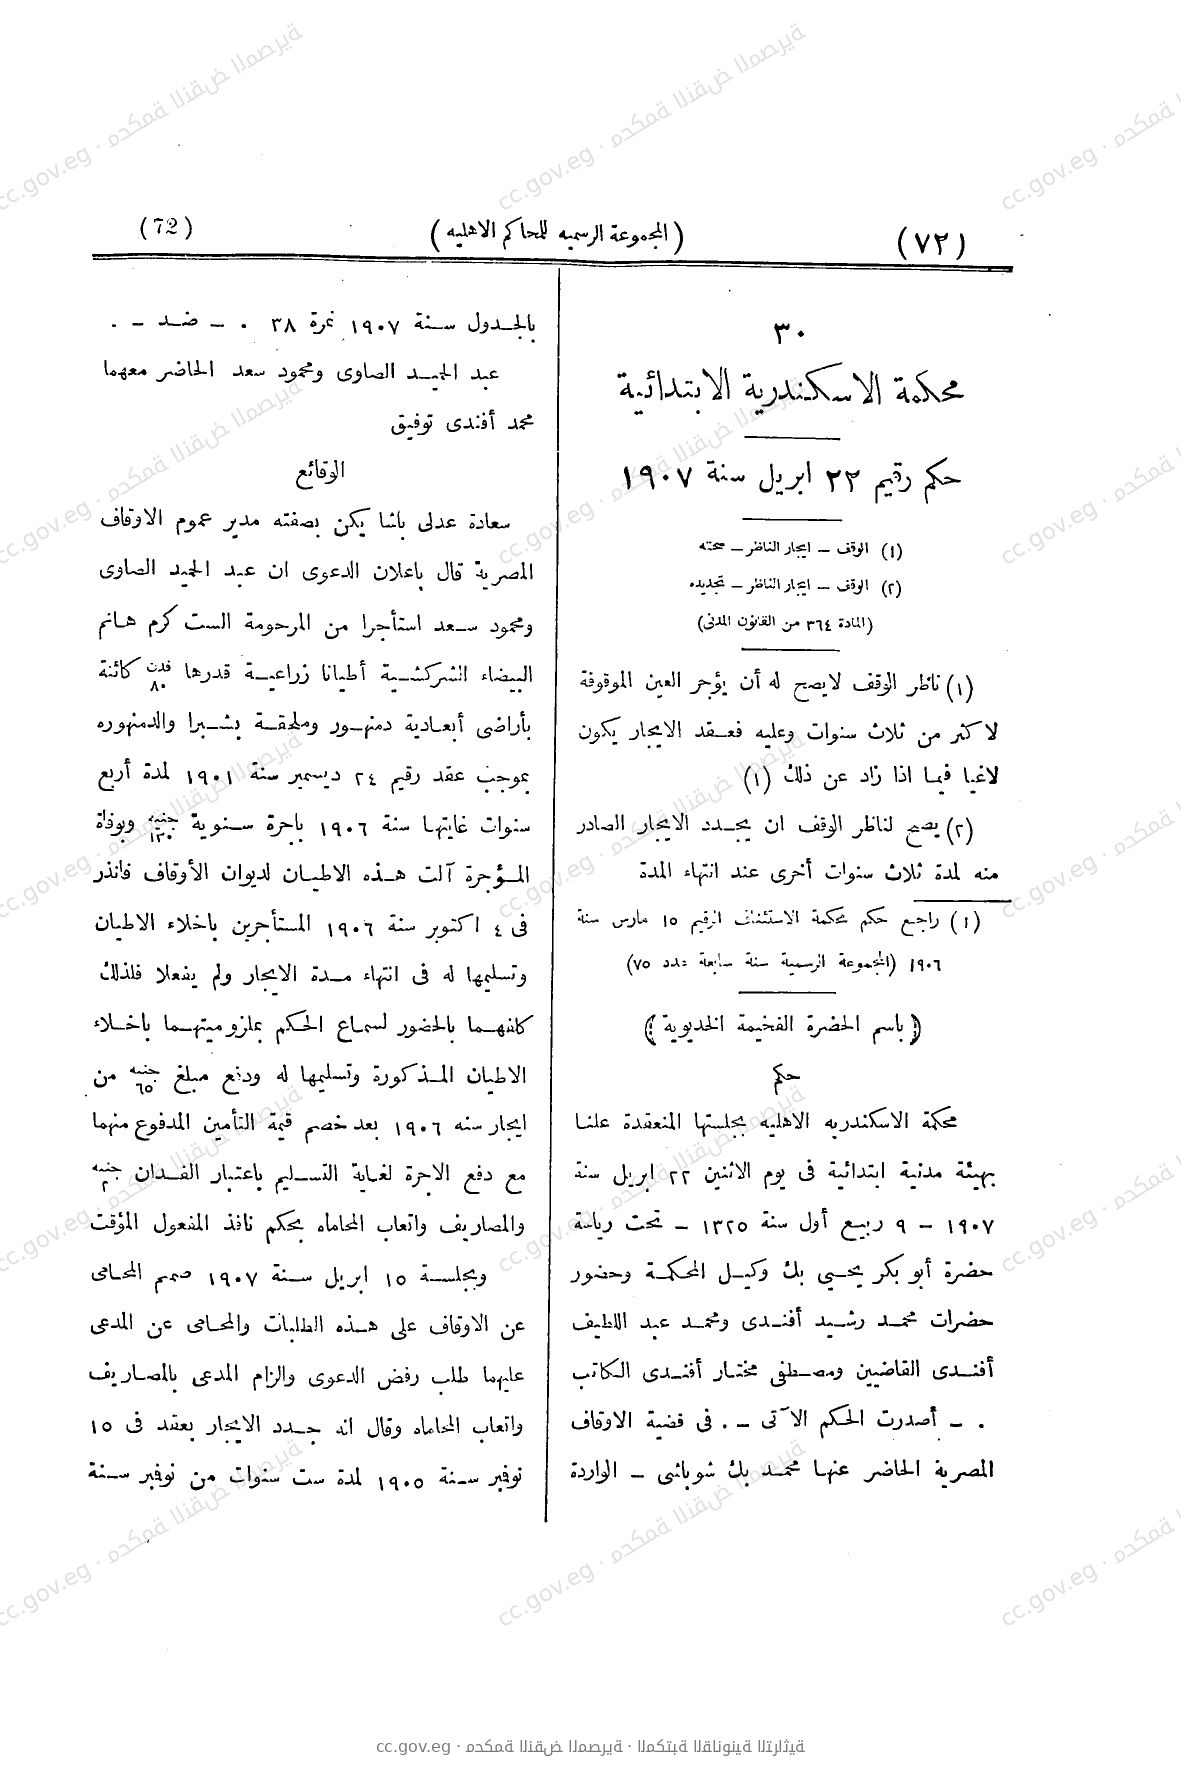 (٧٢)
(المجموعة الرسميه للمحاكم الاهليه)
(72)
٣٠
محكمة الاسكندرية الابتدائية
حكم رقيم ٢٢ ابريل سنة ١٩٠٧
(١) الوقف – ايجار الناظر – صحته
(٢) الوقف – ايجار الناظر – تجديده
(المادة ٣٦٤ من القانون المدنى)
(١) ناظر الوقف لايصح له أن يؤجر العين الموقوفة
لاكثر من ثلاث سنوات وعليه فعقد الايجار يكون
لاغيا فيما اذا زاد عن ذلك (١)
(٢) يصح لناظر الوقف ان يجدد الايجار الصادر
منه لمدة ثلاث سنوات أخرى عند انتهاء المدة
(١) راجع حكم محكمة الاستئناف الرقيم ١٥ مارس سنة
١٩٠٦ (المجموعة الرسمية سنة سابعة عدد ٧٥)
(باسم الحضرة الفخيمة الخديوية)
حكم
محكمة الاسكندريه الاهليه بجلستها المنعقدة علنا
بهيئة مدنية ابتدائية فى يوم الاثنين ٢٢ ابريل سنة
١٩٠٧ – ٩ ربيع أول سنة ١٣٢٥ – تحت رياسة
حضرة أبو بكر يحيى بك وكيل المحكمة وحضور
حضرات محمد رشيد أفندى ومحمد عبد اللطيف
أفندى القاضيين ومصطفى مختار أفندى الكاتب
. – أصدرت الحكم الآتى – . فى قضية الاوقاف
المصرية الحاضر عنها محمد بك شوباشى – الواردة
بالجدول سنة ١٩٠٧ نمرة ٣٨ . – ضد – .
عبد الحميد الصاوى ومحمود سعد الحاضر معهما
محمد أفندى توفيق
الوقائع
سعادة عدلى باشا يكن بصفته مدير عموم الاوقاف
المصرية قال باعلان الدعوى ان عبد الحميد الصاوى
ومحمود سعد استأجرا من المرحومة الست كرم هانم
البيضاء الشركشية أطيانا زراعية قدرها فدن ٨٠ كائنة
بأراضى أبعادية دمنهور وملحقة بشبرا والدمنهوره
بموجب عقد رقيم ٢٤ ديسمبر سنة ١٩٠١ لمدة أربع
سنوات غايتها سنة ١٩٠٦ باجرة سنوية جنيه ١٣٠ وبوفاة
المؤجرة آلت هذه الاطيان لديوان الأوقاف فانذر
فى ٤ اكتوبر سنة ١٩٠٦ المستأجرين باخلاء الاطيان
وتسليمها له فى انتهاء مدة الايجار ولم يفعلا فلذلك
كلفهما بالحضور لسماع الحكم بملزوميتهما باخلاء
الاطيان المذكورة وتسليمها له ودفع مبلغ جنيه ٦٥ من
ايجار سنه ١٩٠٦ بعد خصم قيمة التأمين المدفوع منهما
مع دفع الاجرة لغاية التسليم باعتبار الفدان جنيه
والمصاريف واتعاب المحاماه بحكم نافذ المفعول المؤقت
وبجلسة ١٥ ابريل سنة ١٩٠٧ صمم المحامى
عن الاوقاف على هذه الطلبات والمحامى عن المدعى
عليهما طلب رفض الدعوى والزام المدعى بالمصاريف
واتعاب المحاماه وقال انه جدد الايجار بعقد فى ١٥
نوفبر سنة ١٩٠٥ لمدة ست سنوات من نوفبر سنة
cc.gov.eg · ةيرصملا ضقنلا ةمكحم · ةيثارتلا ةينوناقلا ةبتكملا